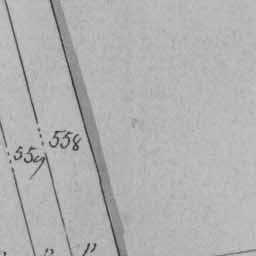 558
559
" "